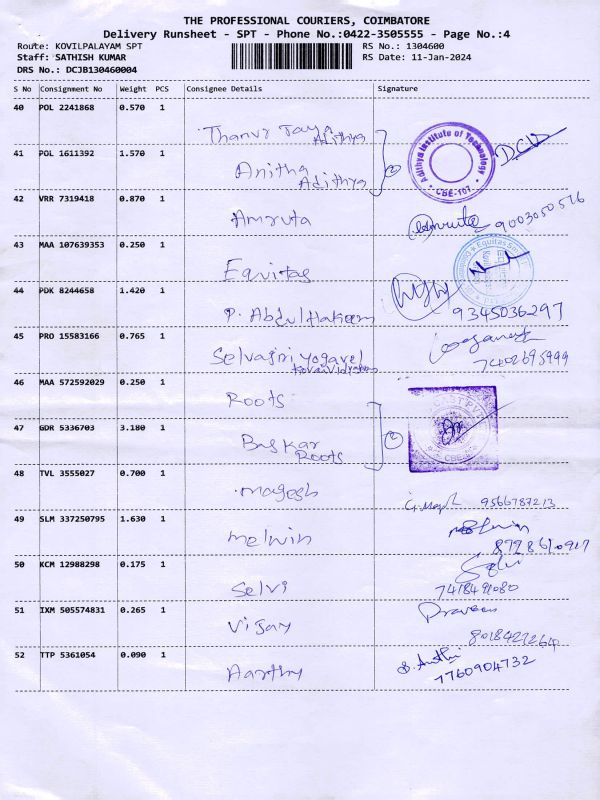 THE PROFESSIONAL COURIERS, COIMBATORE
Delivery Runsheet - SPT - Phone No.:0422-3505555 - Page No.:4
Route: KOVILPALAYAM SPT RS No.: 1304600
Staff: SATHISH KUMAR RS Date: 11-Jan-2024
DRS No.: DCJB130460004
S No Consignment No Weight PCS Consignee Details Signature
40 POL 2241868 0.570 1
Adithya
41 POL 1611392 1.570 1
Anitha
Adithya
Adithya Institute of Technology
CBE-107
42 VRR 7319418 0.870 1
Amruta
Amruta 9003050516
43 MAA 107639353 0.250 1
Equitas
44 PDK 8244658 1.420 1
P. Abdul Hakeem
9345036297
45 PRO 15583166 0.765 1
Selvagiri yogavel
7402695999
46 MAA 572592029 0.250 1
Roots
47 GDR 5336703 3.180 1
Baskar
Roots
48 TVL 3555027 0.700 1
magesh
9566787213
49 SLM 337250795 1.630 1
Melwin
50 KCM 12988298 0.175 1
Selvi
Selvi
7418491080
51 IXM 505574831 0.265 1
Vijay
Praveen
52 TTP 5361054 0.090 1
Aarthy
7760904732